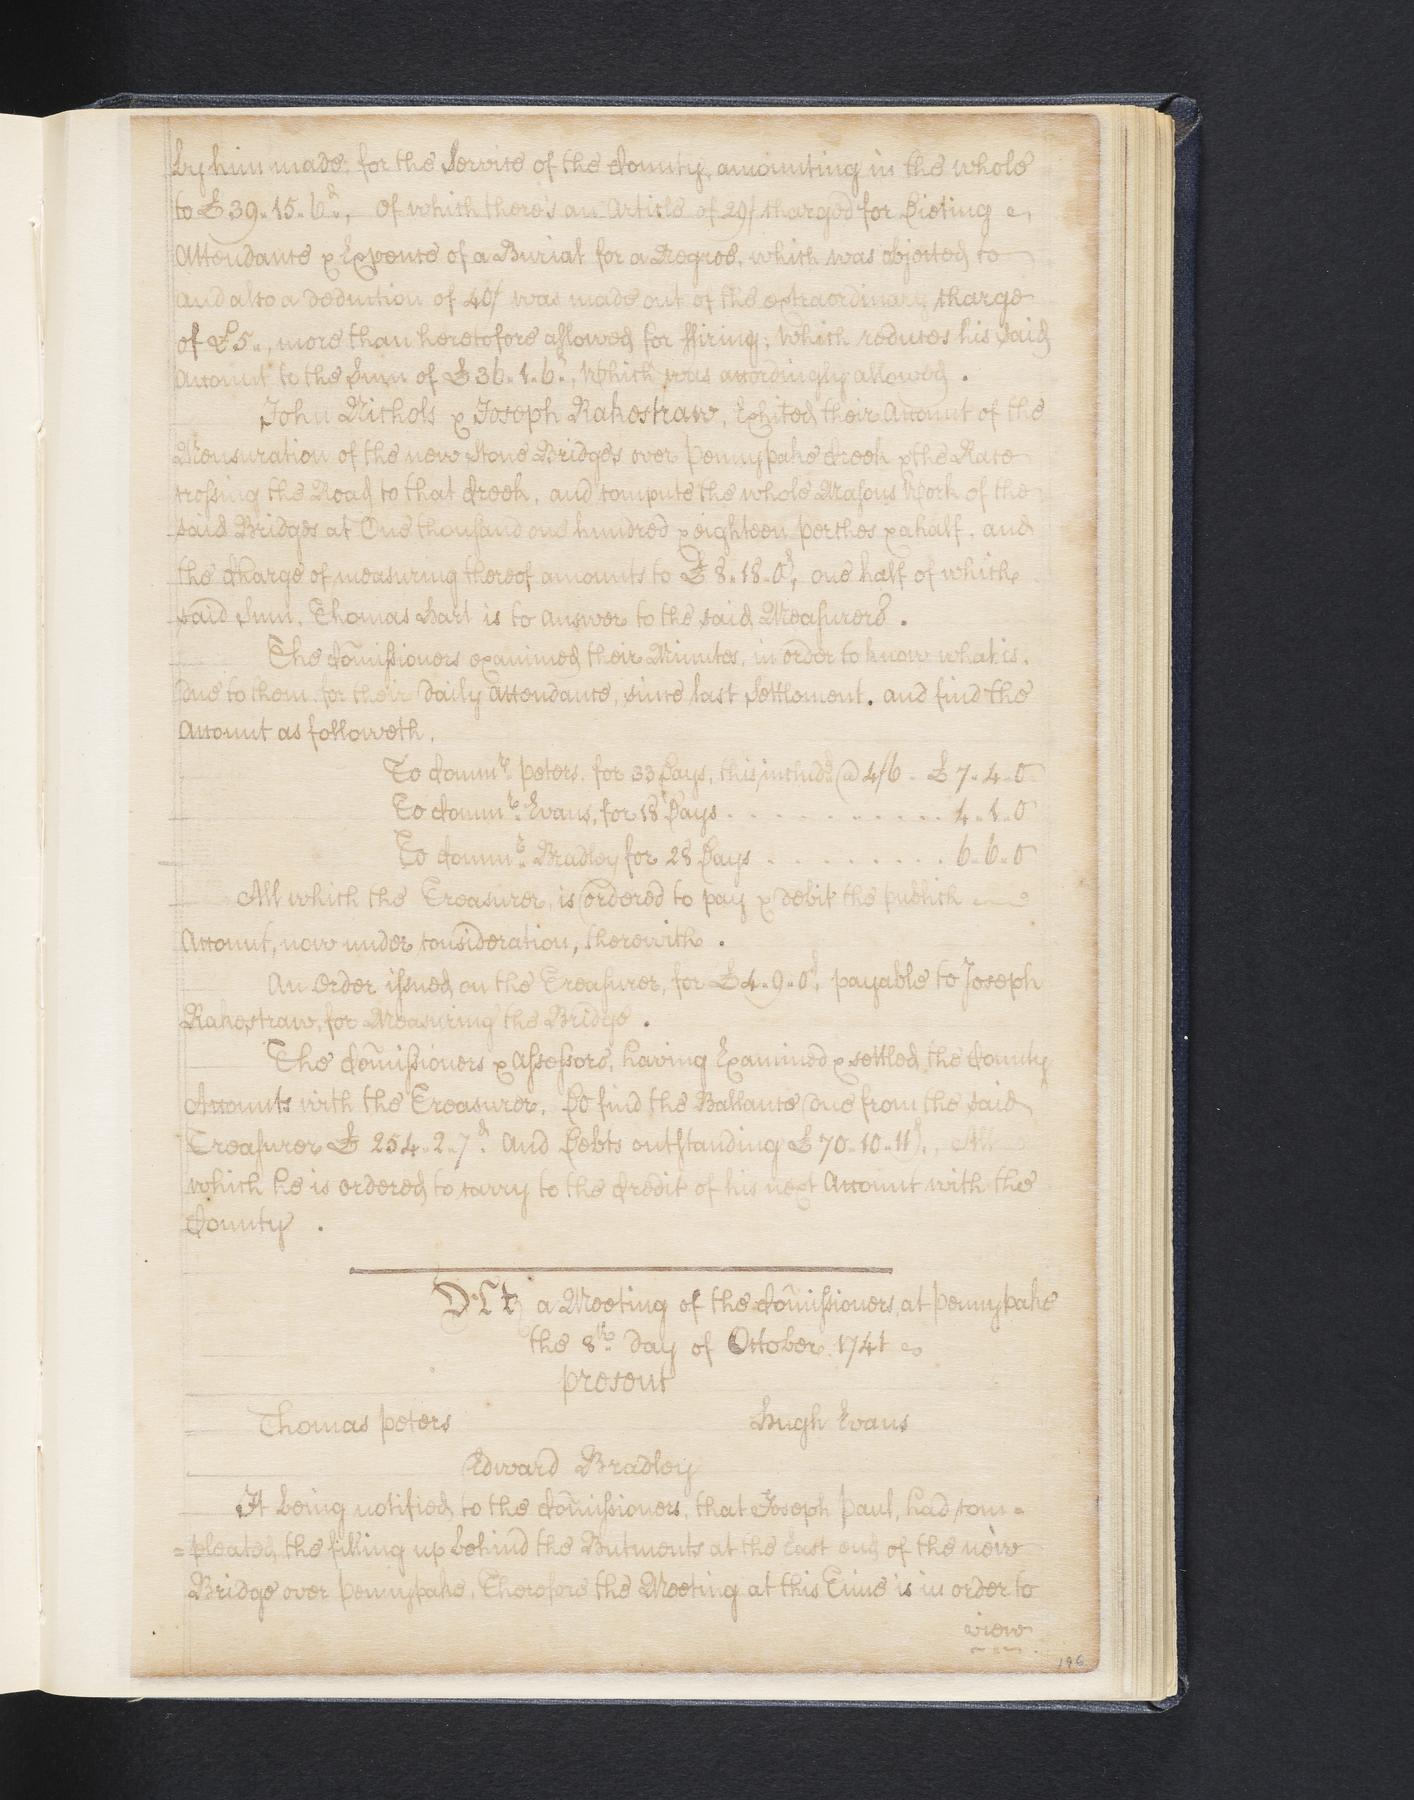 by him made, for the Service of the County, amounting in the whole
to £39..15..6d., Of which there's an Article of 29/ charged for Dieting
Attendance & Expence of a Burial for a Negroe, which was objected to
and also a deduction of 40/ was made out of the extraordinary charge
of £5.., more than heretofore allowed for ffiring; Which reduces his Said
Account to the Sum of £36..1..6d., Which was accordingly allowed.
John Nichols & Joseph Rakestraw, Exhited their Account of the
Mensuration of the new Stone Bridges over Pennypake Creek & the Race
crossing the Road to that Creek, and compute the whole Masons Work of the
said Bridges at One thousand one hundred & eighteen perches & a half, and
the Charge of measuring thereof amounts to £8..18..0d, one half of which
said Sum, Thomas Hart is to answer to the said Measurers.
The Comissioners examined their Minutes, in order to know what is
due to them for their daily Attendance, since last Settlement. and find the
Account as followeth,
To Commr. Peters, for 33 Days, this includd. @ 4/6 .. £7..4..0
To Commr. Evans, for 18 Days . . . . . . . . . . . 4..1..0
To Commr. Bradley for 28 Days . . . . . . . . . 6..6..0
All which the Treasurer, is ordered to pay & debit the publick
Account, now under consideration, therewith.
An Order issued on the Treasurer, for £4..9..0d, payable to Joseph
Rakestraw, for Measuring the Bridge.
The Comissioners & Assessors, having Examined & settled the County
Accounts with the Treasurer, Do find the Ballance due from the said
Treasurer £254..2..7d And Debts outstanding £70..10..11d., All
which he is ordered to carry to the Credit of his next Account with the
County.
At a Meeting of the Comissioners, at Pennypake
the 8th day of October 1741
Present
Thomas Peters Hugh Evans
Edward Bradley
It being notified to the Comissioners, that Joseph Paul, had com=
=pleated the filling up behind the Butments at the East end of the new
Bridge over Pennypake, Therefore the Meeting at this Time is in order to
view
196